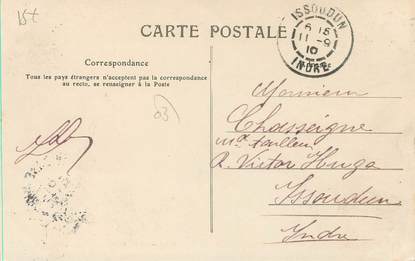 15t
CARTE POSTALE
ISSOUDUN
9 15
11 - 9
10
INDRE
Correspondance
Tous les pays étrangers n'acceptent pas la correspondance
au recto, se renseigner à la Poste
03
Monsieur
Chasseigne
Md tailleur
R. Victor Hugo
Issoudun
Indre